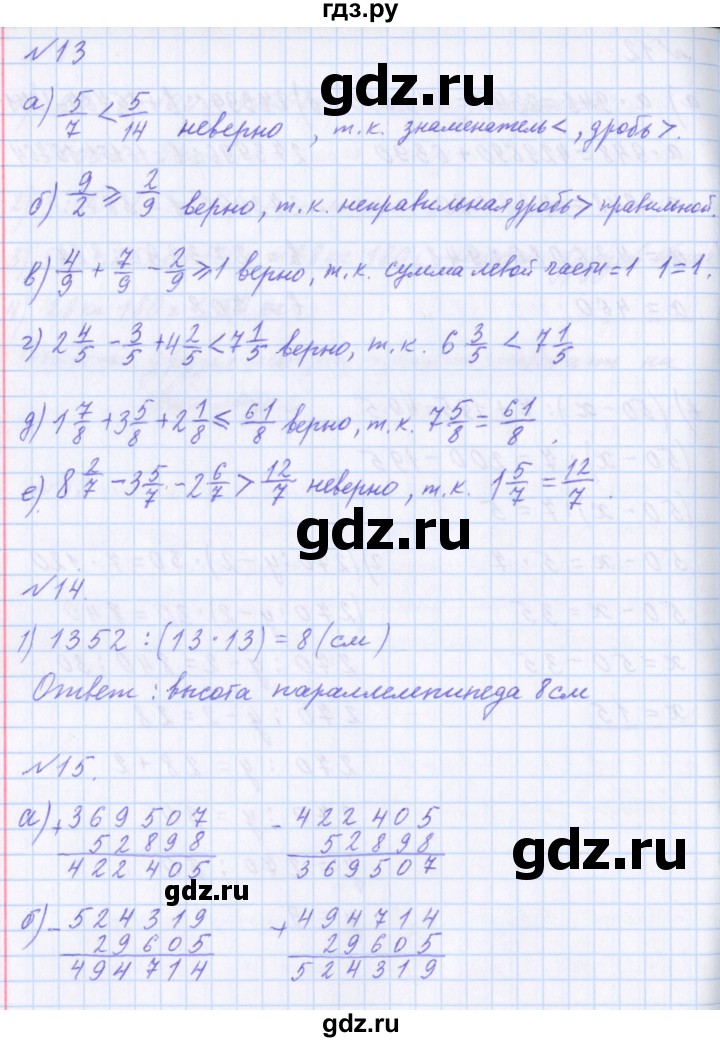 гдз.ру
№13
gdz.ru
а) 5/7 < 5/14 неверно, т.к. знаменатель <, дробь >.
б) 9/2 ⩾ 2/9 верно, т.к. неправильная дробь > правильной.
в) 4/9 + 7/9 - 2/9 ⩾ 1 верно, т.к. сумма левой части = 1 1 = 1.
г) 2 4/5 - 3/5 + 4 2/5 < 7 1/5 верно, т.к. 6 3/5 < 7 1/5
д) 1 7/8 + 3 5/8 + 2 1/8 ⩽ 61/8 верно, т.к. 7 5/8 = 61/8.
е) 8 2/7 - 3 5/7 - 2 6/7 > 12/7 неверно, т.к. 1 5/7 = 12/7.
gdz.ru
№14.
1) 1352 : (13 · 13) = 8 (см)
Ответ: высота параллелепипеда 8 см
№15.
а) + 369507 - 422405
52898 52898
422405 369507
gdz.ru
gdz.ru
б) - 524319 + 494714
29605 29605
494714 524319
gdz.ru